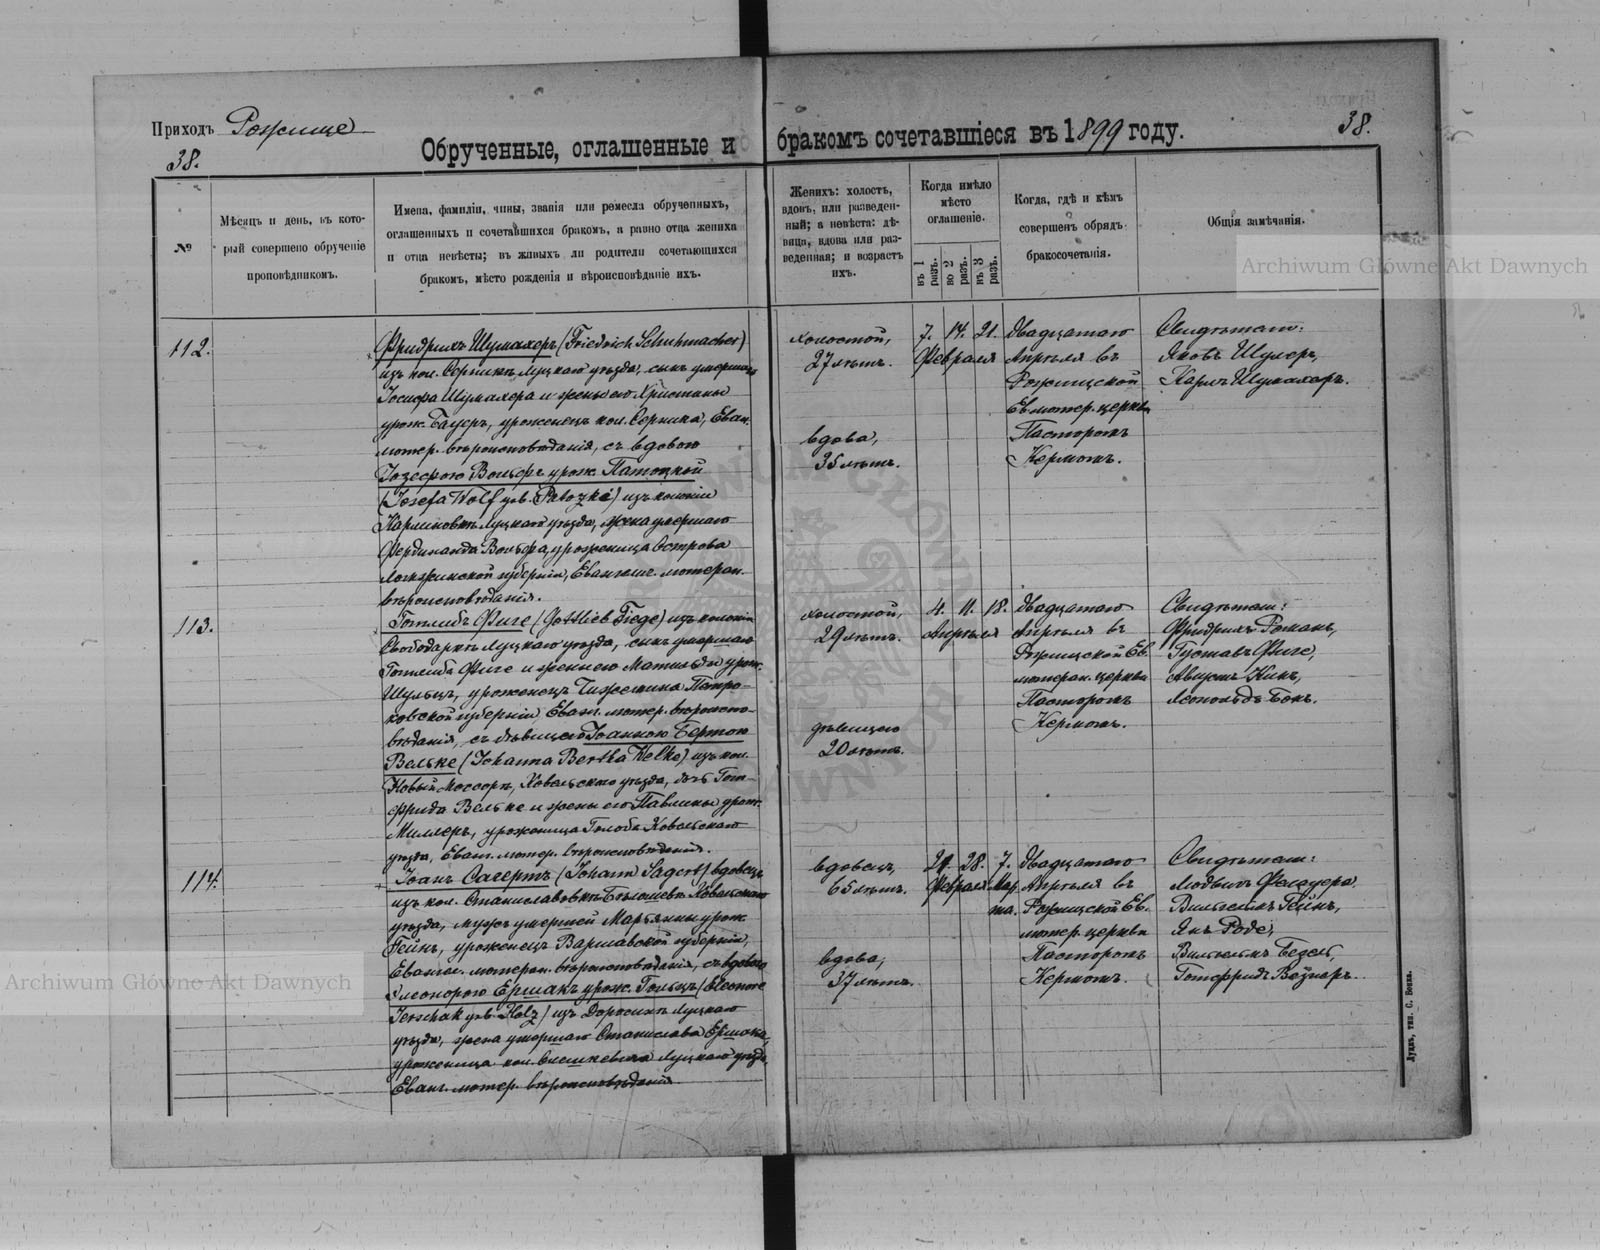 Приходъ Рожище
38.
38.
Обрученные, оглашенные и бракомъ сочетавшіеся въ 1899 году.
№
Мѣсяцъ и день, въ кото-
рый совершено обрученіе
проповѣдникомъ.
Имена, фамиліи, чины, званія или ремесла обрученныхъ,
оглашенныхъ и сочетавшихся бракомъ, а равно отца жениха
и отца невѣсты; въ живыхъ ли родители сочетающихся
бракомъ, мѣсто рожденія и вѣроисповѣданіе ихъ.
Женихъ: холостъ,
вдовъ, или разведен-
ный; а невѣста: дѣ-
вица, вдова или раз-
веденная; и возрастъ
ихъ.
Когда имѣло
мѣсто
оглашеніе.
въ 1
разъ.
во 2
разъ.
въ 3
разъ.
Когда, гдѣ и кѣмъ
совершенъ обрядъ
бракосочетанія.
Общія замѣчанія.
112.
Фридрихъ Шумахеръ (Friedrich Schuhmacher)
изъ кол. Луцкаго уѣзда, сынъ умершаго
Іосифа Шумахера и жены его Христины
урож. Бауеръ, уроженецъ кол. Еван.
лютер. вѣроисповѣданія, съ вдовою
Іозефою Вольфъ урож.
(Josefa Wolf geb.) изъ колоніи
Луцкаго уѣзда, жена умершаго
Фердинанда Вольфа, уроженица Острова
Ломжинской губерніи, Евангел. лютеран.
вѣроисповѣданія.
холостой,
27 лѣтъ.
вдова,
35 лѣтъ.
7. 14. 21.
Февраля
двадцатаго
Апрѣля въ
Рожищской
Ев. лютер. церкви
Пасторомъ
Кермомъ.
Свидѣтели:
Яковъ Шулеръ,
Карлъ Шумахеръ.
113.
Готлибъ Фиге (Gottlieb Fiege) изъ колоніи
Свободарка Луцкаго уѣзда, сынъ умершаго
Готлиба Фиге и жены его Матильды урож.
Шульцъ, уроженецъ Петро-
ковской губерніи, Еванг. лютер. вѣроиспо-
вѣданія, съ дѣвицею Іоанною Бертою
Вельке (Johanna Bertha Welke) изъ кол.
Новый Моссоръ, Ковельскаго уѣзда, дочь Гот-
фрида Вельке и жены его Павлины урож.
Миллеръ, уроженица Голоба Ковельскаго
уѣзда, Еванг. лютер. вѣроисповѣданія.
холостой,
29 лѣтъ.
дѣвицею
20 лѣтъ.
4. 11. 18.
Апрѣля
двадцатаго
Апрѣля въ
Рожищской Ев.
лютеран. церкви
Пасторомъ
Кермомъ.
Свидѣтели:
Фридрихъ Романъ,
Густавъ Фиге,
Августъ Кинъ,
Леопольдъ Бокъ.
114.
Іоанъ Сагертъ (Johann Sagert) вдовецъ
изъ кол. Станиславовка Ковельскаго
уѣзда, мужъ умершей Марьянны урож.
Гейнъ, уроженецъ Варшавской губерніи,
Евангел. лютеран. вѣроисповѣданія, съ вдовою
Элеонорою Ершакъ урож. Гольцъ (Eleonore
Jerschak geb. Holz) изъ Луцкаго
уѣзда, жена умершаго Станислава Ершака,
уроженица кол. Луцкаго уѣзда,
Еванг. лютер. вѣроисповѣданія
вдовецъ,
65 лѣтъ.
вдова,
37 лѣтъ.
21. 28. 7.
Февраля Мар
та.
двадцатаго
Апрѣля въ
Рожищской Ев.
лютер. церкви
Пасторомъ
Кермомъ.
Свидѣтели:
Людвигъ
Вильгельмъ Гейнъ,
Янъ Роде,
Вильгельмъ
Готфридъ
Луцкъ, тип. С. Бокка.
Archiwum Główne Akt Dawnych
Archiwum Główne Akt Dawnych